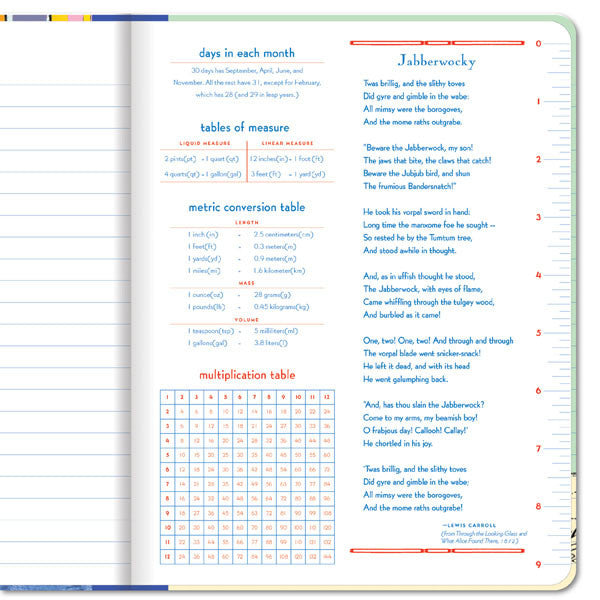 days in each month
30 days has September, April, June, and
November. All the rest have 31, except for February,
which has 28 (and 29 in leap years.)
tables of measure
LIQUID MEASURE LINEAR MEASURE
2 pints(pt) - 1 quart (qt) 12 inches(in) - 1 foot (ft)
4 quarts(qt) - 1 gallon(gal) 3 feet (ft) - 1 yard (yd)
metric conversion table
LENGTH
1 inch (in) - 2.5 centimeters(cm)
1 feet(ft) - 0.3 meters(m)
1 yards(yd) - 0.9 meters(m)
1 miles(mi) - 1.6 kilometer(km)
MASS
1 ounce(oz) - 28 grams(g)
1 pounds(lb) - 0.45 kilograms(kg)
VOLUME
1 teaspoon(tsp) - 5 milliliters(ml)
1 gallons(gal) - 3.8 liters(l)
multiplication table
1 2 3 4 5 6 7 8 9 10 11 12
2 4 6 8 10 12 14 16 18 20 22 24
3 6 9 12 15 18 21 24 27 30 33 36
4 8 12 16 20 24 28 32 36 40 44 48
5 10 15 20 25 30 35 40 45 50 55 60
6 12 18 24 30 36 42 48 54 60 66 72
7 14 21 28 35 42 49 56 63 70 77 84
8 16 24 32 40 48 56 64 72 80 88 96
9 18 27 36 45 54 63 72 81 90 99 108
10 20 30 40 50 60 70 80 90 100 110 120
11 22 33 44 55 66 77 88 99 110 121 132
12 24 36 48 60 72 84 96 108 120 132 144
Jabberwocky
Twas brillig, and the slithy toves
Did gyre and gimble in the wabe:
All mimsy were the borogoves,
And the mome raths outgrabe.
"Beware the Jabberwock, my son!
The jaws that bite, the claws that catch!
Beware the Jubjub bird, and shun
The frumious Bandersnatch!"
He took his vorpal sword in hand:
Long time the manxome foe he sought --
So rested he by the Tumtum tree,
And stood awhile in thought.
And, as in uffish thought he stood,
The Jabberwock, with eyes of flame,
Came whiffling through the tulgey wood,
And burbled as it came!
One, two! One, two! And through and through
The vorpal blade went snicker-snack!
He left it dead, and with its head
He went galumphing back.
"And, has thou slain the Jabberwock?
Come to my arms, my beamish boy!
O frabjous day! Callooh! Callay!'
He chortled in his joy.
'Twas brillig, and the slithy toves
Did gyre and gimble in the wabe:
All mimsy were the borogoves,
And the mome raths outgrabe!
—LEWIS CARROLL
(From Through the Looking-Glass and
What Alice Found There, 1872)
0
1
2
3
4
5
6
7
8
9